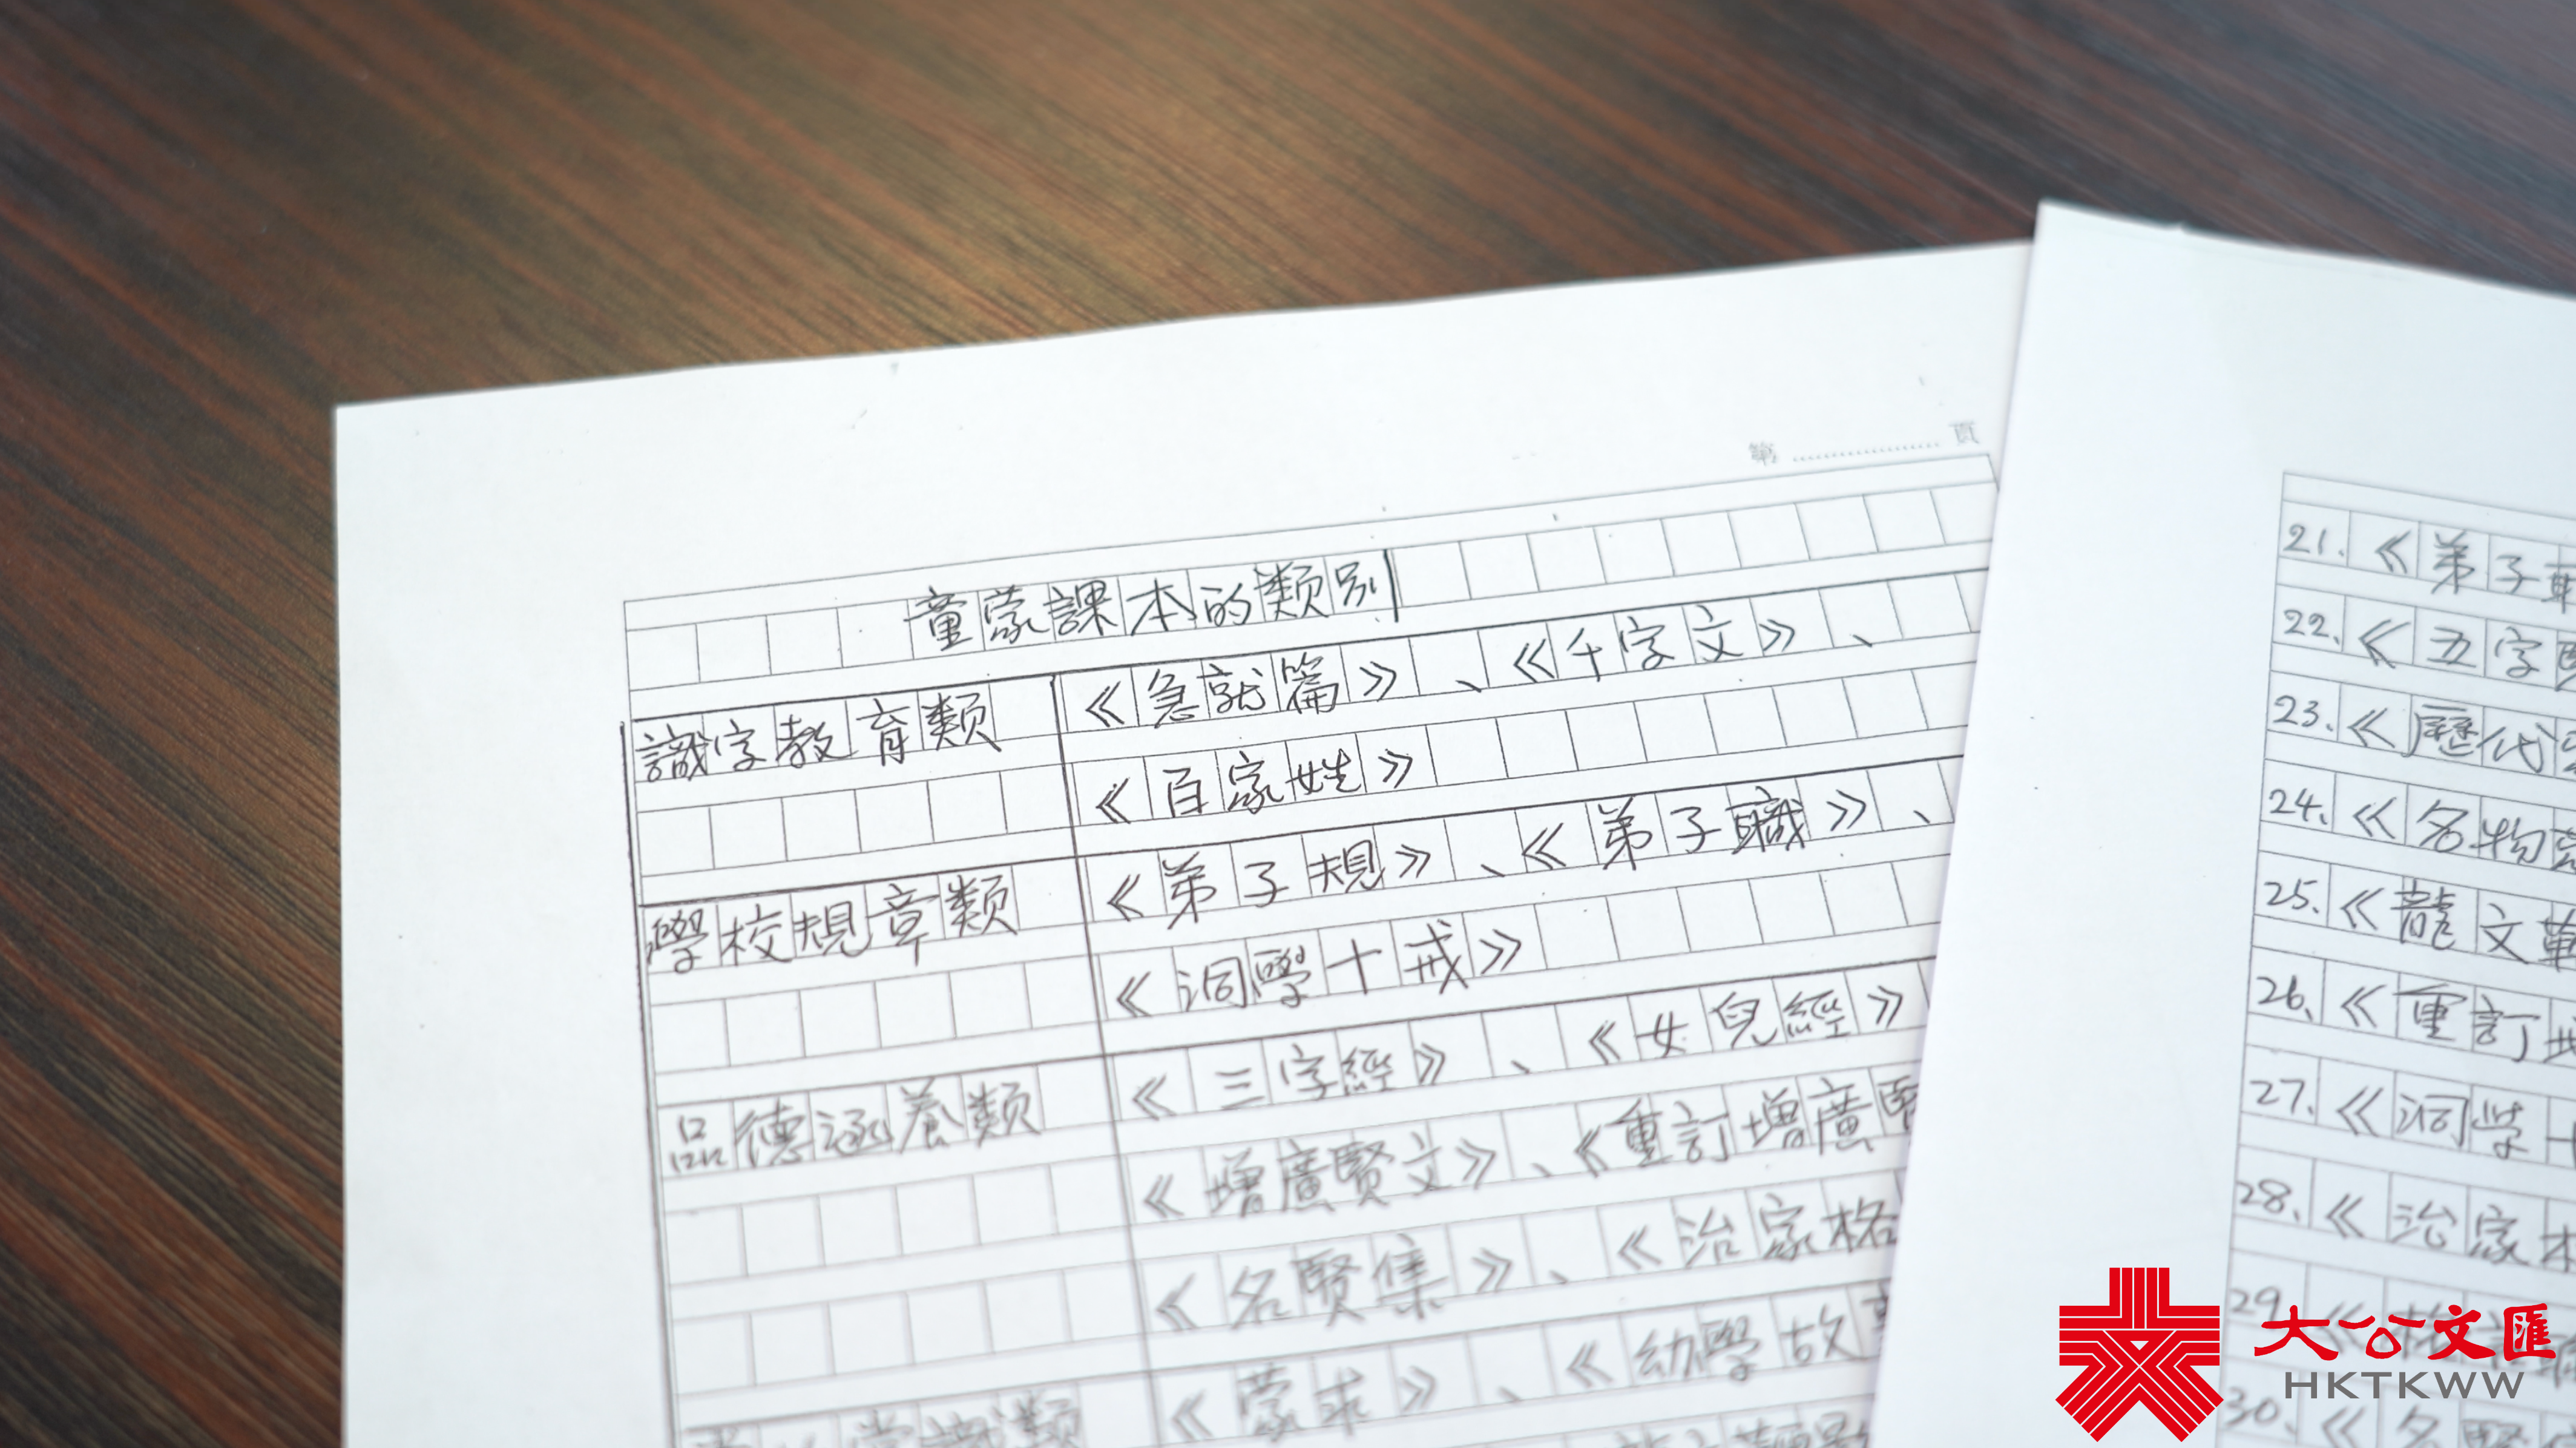 第 頁
童蒙課本的類別
識字教育類 《急就篇》、《千字文》、
《百家姓》
學校規章類 《弟子規》、《弟子職》、
《洞學十戒》
品德涵養類 《三字經》、《女兒經》
《增廣賢文》、《重訂增廣
《名賢集》、《治家格
《蒙求》、《幼學故
常識類
21.《弟子職
22.《五字
23.《歷代
24.《名物
25.《龍文
26.《重訂
27.《洞学十
28.《治家
29.《
30.《名賢
大公文匯
HKTKWW